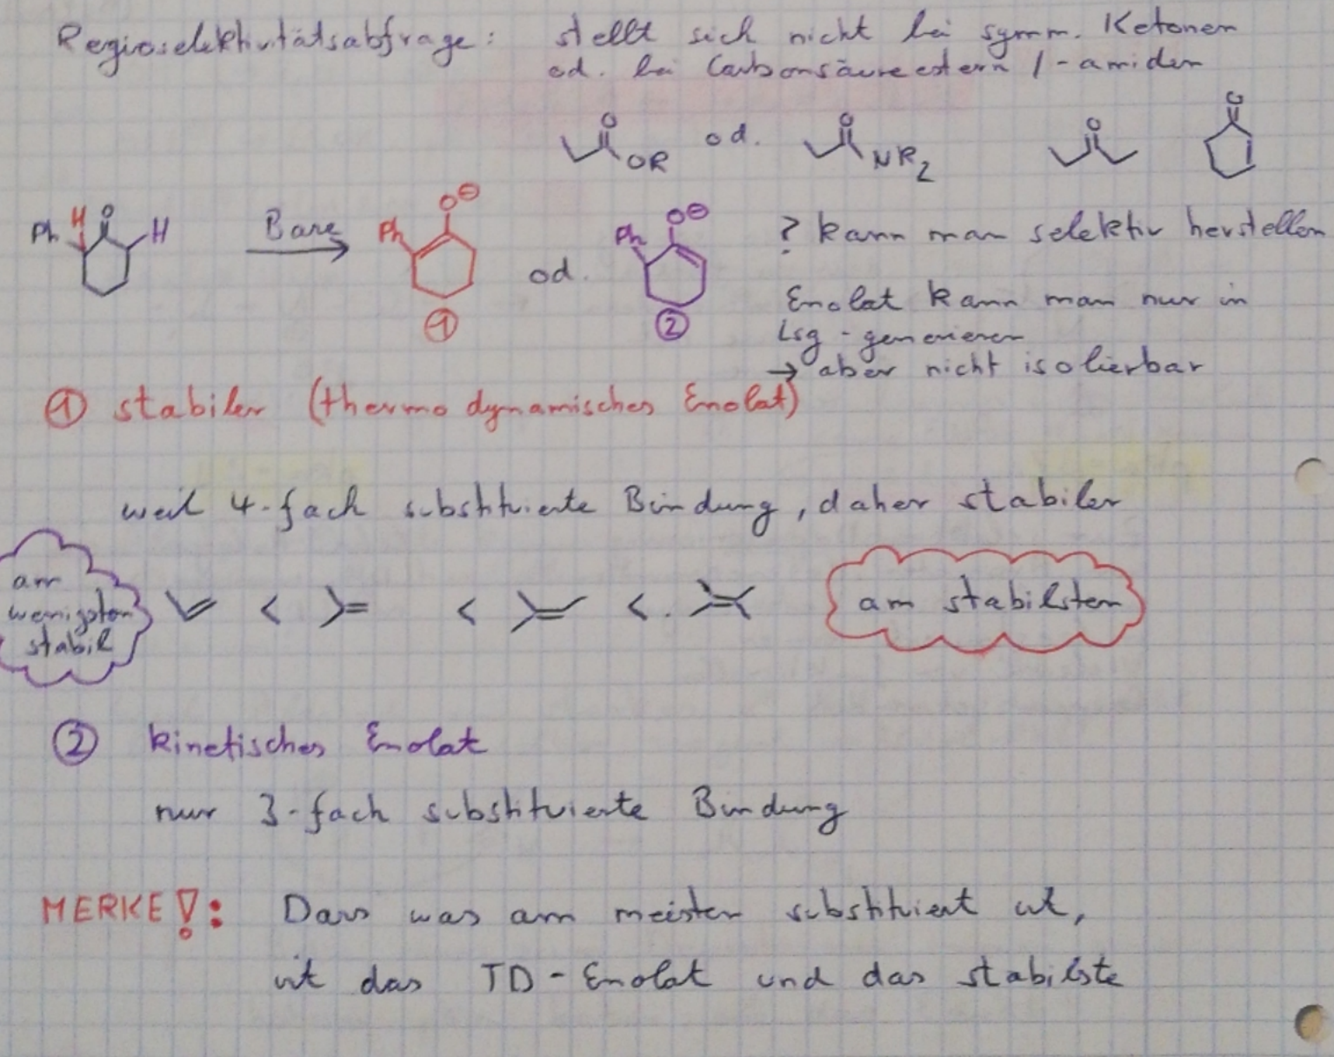 Regioselektivitätsabfrage: stellt sich nicht bei symm. Ketonen
od. bei Carbonsäureestern /-amiden
O
OR
od.
O
NR2
O
O
Ph H O H
Base
Ph O⊖
①
od.
Ph O⊖
②
? kann man selektiv herstellen
Enolat kann man nur in
Lsg - generieren
→ aber nicht isolierbar
① stabiler (thermodynamisches Enolat)
weil 4-fach substituierte Bindung, daher stabiler
am
wenigsten
stabil
< < <
am stabilsten
② kinetisches Enolat
nur 3-fach substituierte Bindung
MERKE!: Dass was am meisten substituiert ist,
ist das TD-Enolat und das stabilste